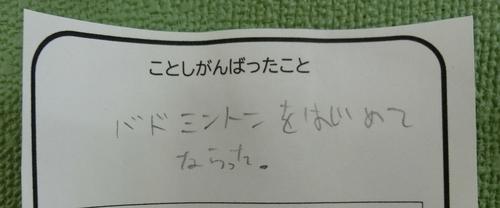 ことしがんばったこと
バドミントンをはじめて
ならった。